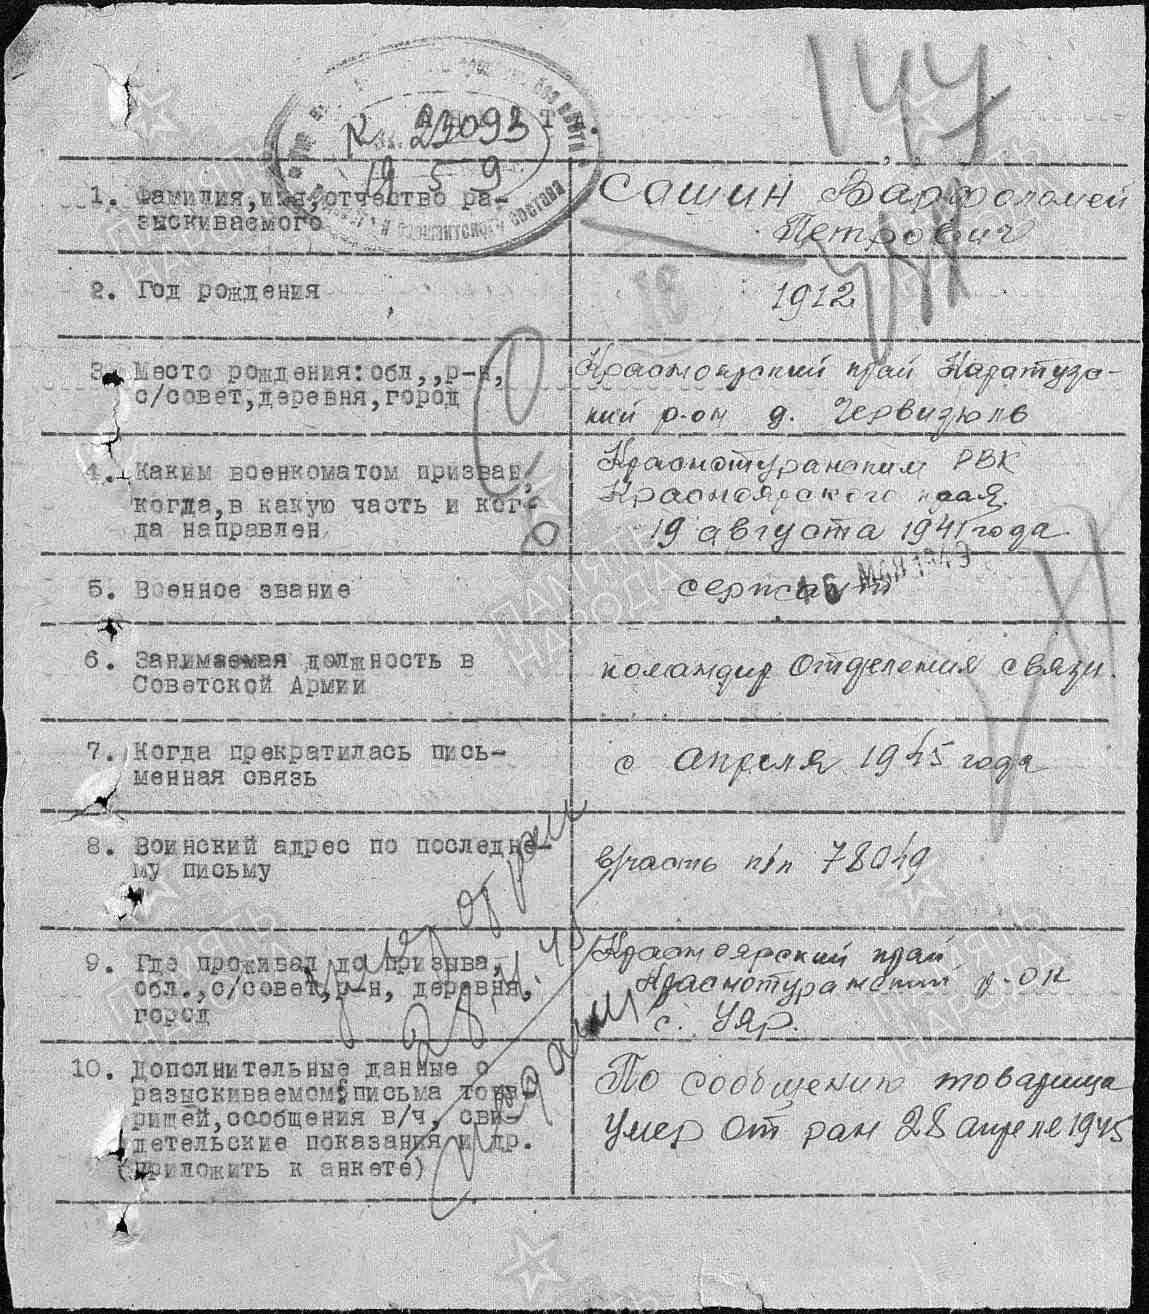 147
АНКЕТА.
№ 23093
19 5 9
1. Фамилия, имя, отчество ра-
зыскиваемого
Сашин Варфоломей
Петрович
2. Год рождения
1912
3. Место рождения: обл,,р-н,
с/совет, деревня, город
Красноярский край Каратузс-
кий р-он д. Червизюль
4. Каким военкоматом призван,
когда, в какую часть и ког-
да направлен
Краснотуранским РВК
Красноярского края
19 августа 1941 года
5. Военное звание
сержант
16 МАЯ 1949
6. Занимаемая должность в
Советской Армии
командир отделения связи.
7. Когда прекратилась пись-
менная связь
с апреля 1945 года
8. Воинский адрес по последне-
му письму
в/часть п/п 78049
9. Где проживал до призыва,
обл.,с/совет, р-н, деревня,
город
Красноярский край
Краснотуранский р-он
с. Уяр.
10. Дополнительные данные о
разыскиваемом: письма това-
рищей, сообщения в/ч, сви-
детельские показания и др.
(приложить к анкете)
По сообщению товарища
умер от ран 28 апреля 1945
умер от ран
28.4.45
ПАМЯТЬ
НАРОДА